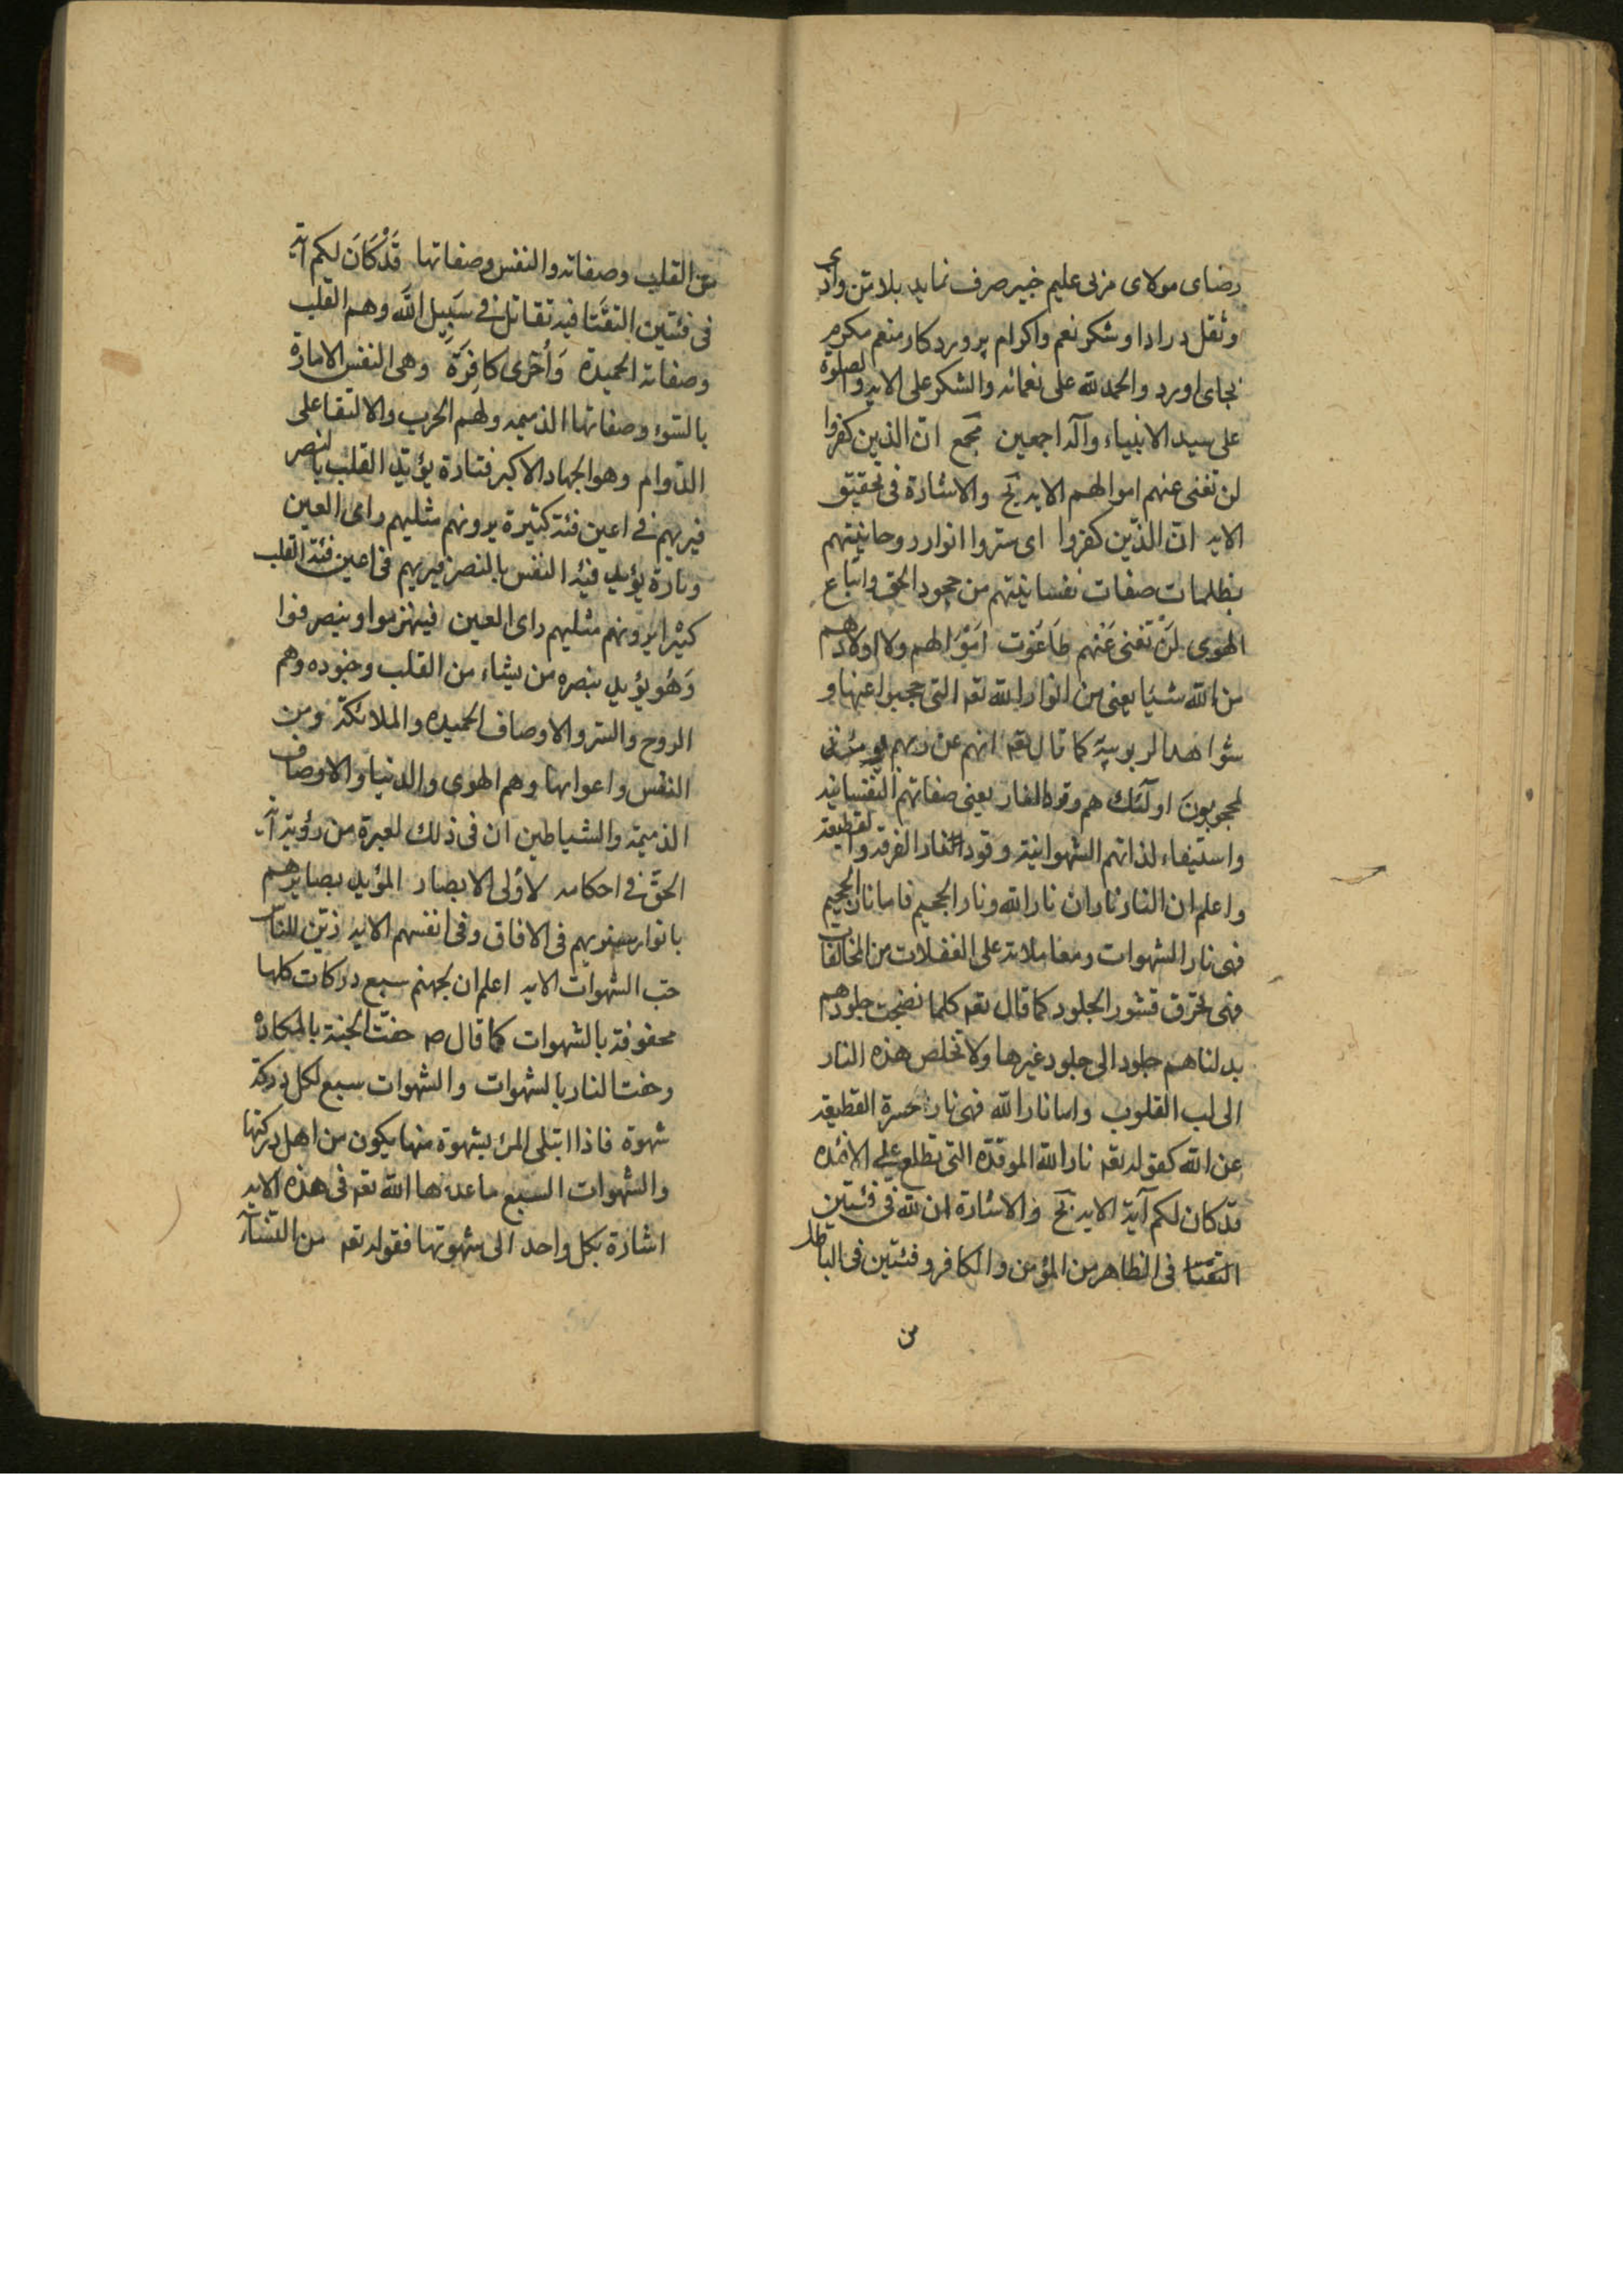 رضای مولای مربی علیم خبیر صرف نماید بلا من واذی
وثقل در ادا وشکر نعم واکرام پرورد کار منعم مکرم
بجای اورد والحمد لله علی نعمائه والشکر علی الایه والصلوة
علی سید الانبیاء وآله اجمعین نجمع ان الذین کفروا
لن تغنی عنهم اموالهم الایه نج والاشارة فی تحقیق
الایه ان الذّین کفروا ای ستروا انوار روحانیتهم
بظلمات صفات نفسانیتهم من جحود الحق واتباع
الهوی لَنْ تغنی عَنْهم طَاغَوت اَمْوَالهم ولا اولادهم
من الله شیًا یعنی من انوار الله تعه التی حجبوا عنها و
شواهد الربوبیّة کما قال تعه انهم عن ربهم یومئذ
لمحجوبونَ اولئك هم وقود النار یعنی صفاتهم النفسانیه
واستیفاء لذاتهم الشهوانیة وقود النار الفرقه والقطیعة
واعلم ان النار ناران نار الله ونار الجحیم فاما نار الجحیم
فهی نار الشهوات ومعاملاته علی الغفلات من المخالفات
فهی تحرق قشور الجلود کما قال تعه کلما نضجت جلودهم
بدلناهم جلود الی جلود غیرها ولا تخلص هذه النار
الی لب القلوب واما نار الله فهی نار حسرة القطیعة
عن الله کقوله تعه نار الله الموقدة التی تطلع علی الافئده
قد کان لکم آیة الایه نج والاشارة ان لله فی فئتین
التقتا فی الظاهر من المؤمن والکافر وفئتین فی الباطن
من
من القلب وصفاته والنفس وصفاتها قَدْ کَانَ لکم آیة
فی فئتین التقَتا فیه تقاتل فی سَبِیل الله وهم القلب
وصفاته الحمیدة وَأُخْری کافِرَة وهی النفس الامارة
بالسّوء وصفاتها الذمیمه ولهم الحرب والالتقا علی
الدّوام وهو الجهاد الاکبر فتارة یؤیّد القلب بالنصر
فیریهم فی اعین فئة کثیرة یرونهم مثلیهم رای العین
وتارة یؤید فیْه النفس بالنصر فیریهم فی اعین فئة القلب
کثیْرا یرونهم مثلیهم رای العین فینهزموا وینصرفوا
وَهُو یؤید بنصره من یشاء من القلب وجنوده وهم
الروح والسّر والاوصاف الحمیده والملائکة ومن
النفس واعوانها وهم الهوی والدنیا والاوصاف
الذمیمة والشیاطین ان فی ذلك لعبرة من رؤیة آیة
الحقّ فی احکامه لاوُلی الابصار المؤید بصایرهم
بانوار سنریهم فی الافاق وفی انفسهم الایه زیّن للناس
حبّ الشهوات الایه اعلم ان لجهنم سبع درکات کلها
محفوفة بالشهوات کما قال ص حفّت الجنة بالمکاره
وحفت النار بالشهوات والشهوات سبع لکل درکة
شهوة فاذا ابتلی المرء بشهوة منها یکون من اهل درکتها
والشهوات السبع ما عدها الله تعه فی هذه الایه
اشارة بکل واحد الی شهوتها فقوله تعه من النّساء